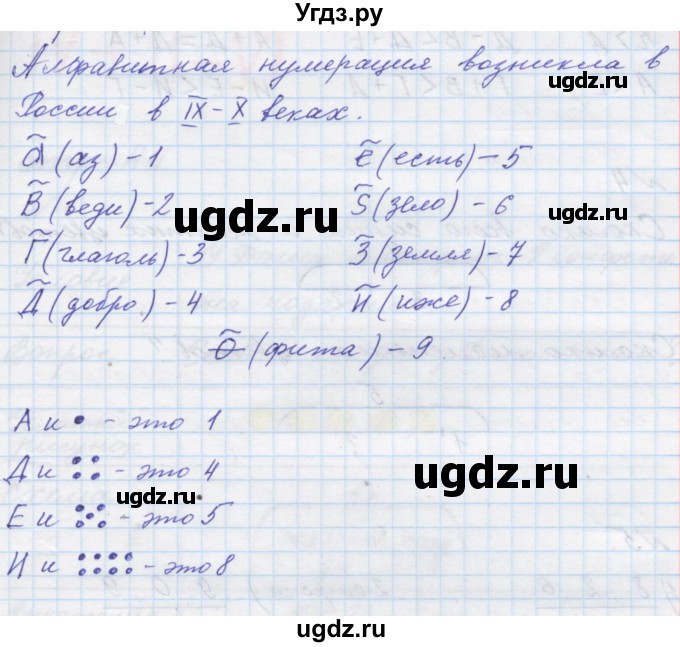 Угдз.ру
Алфавитная нумерация возникла в
России в IX-X веках.
А̃ (аз) - 1 Е̃ (есть) - 5
В̃ (веди) - 2 Ѕ̃ (зело) - 6
Г̃ (глаголь) - 3 З̃ (земля) - 7
Д̃ (добро) - 4 И̃ (иже) - 8
Ѳ̃ (фита) - 9
А и • - это 1
Д и :: - это 4
Е и ⁙ - это 5
И и :::: - это 8
ugdz.ru
ugdz.ru
ugdz.ru
ugdz.ru
ugdz.ru
ugdz.ru